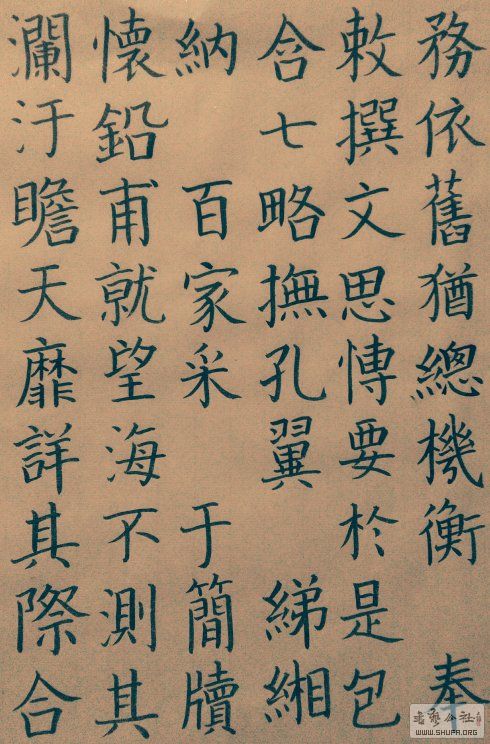 務依舊猶總機衡 奉
敕撰文思愽要於是包
含七略撫孔翼 綈緗
納 百家采 于簡牘
懷鉛甫就望海不測其
瀾汙瞻天靡詳其際合
書藝公社
WWW.SHUFA.ORG